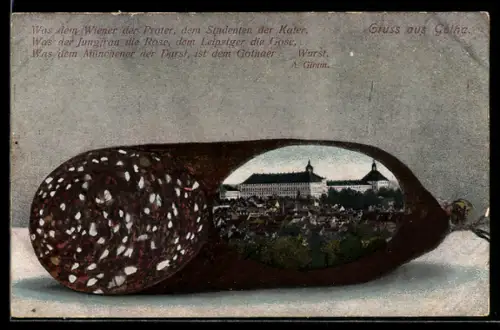 Was dem Wiener der Prater, dem Studenten der Kater,
Gruss aus Gotha.
Was der Jungfrau die Rose, dem Leipziger die Gose,
Was dem Münchener der Durst, ist dem Gothaer Wurst.
A. Gimm.